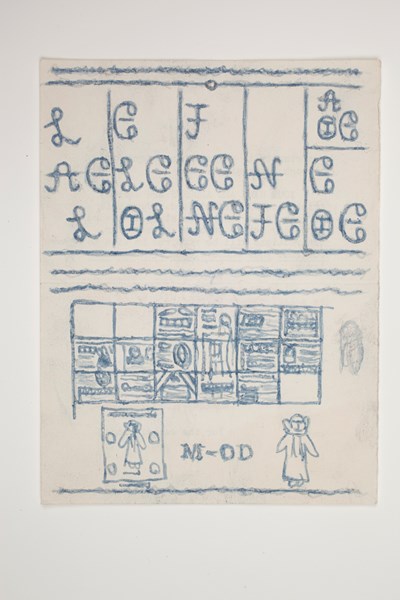 A
L E F OE
AE LE EE N E
L OL NE FE OE
M-OD